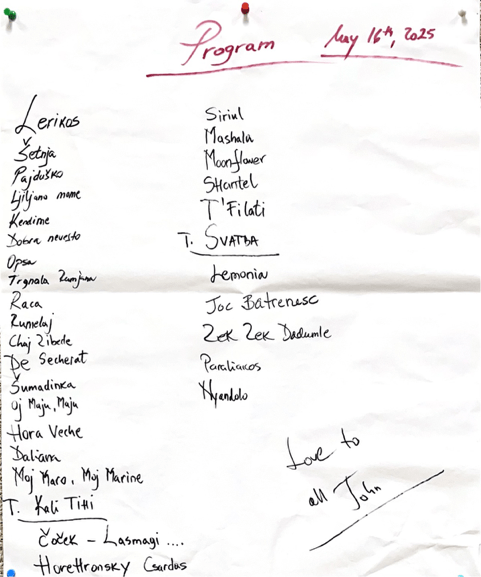 Program May 16th, 2025
Lerikos
Šetnja
Pajduško
Ljiljano mome
Kendime
Dobra nevesto
Opsa
Trgnala Rumjana
Raca
Rumelaj
Chaj Zibede
De Secherat
Šumadinka
Oj Maju, Maju
Hora Veche
Daliana
Moj Maro, Moj Marine
T. Kali Titi
Čoček - Lasmagi ....
Horehronsky Csardas
Siriul
Mashala
Moonflower
Shantel
T'Filati
T. SVATBA
Lemonia
Joc Bătrenesc
Zek Zek Dadumle
Paraliakos
Nyandolo
Love to
all John